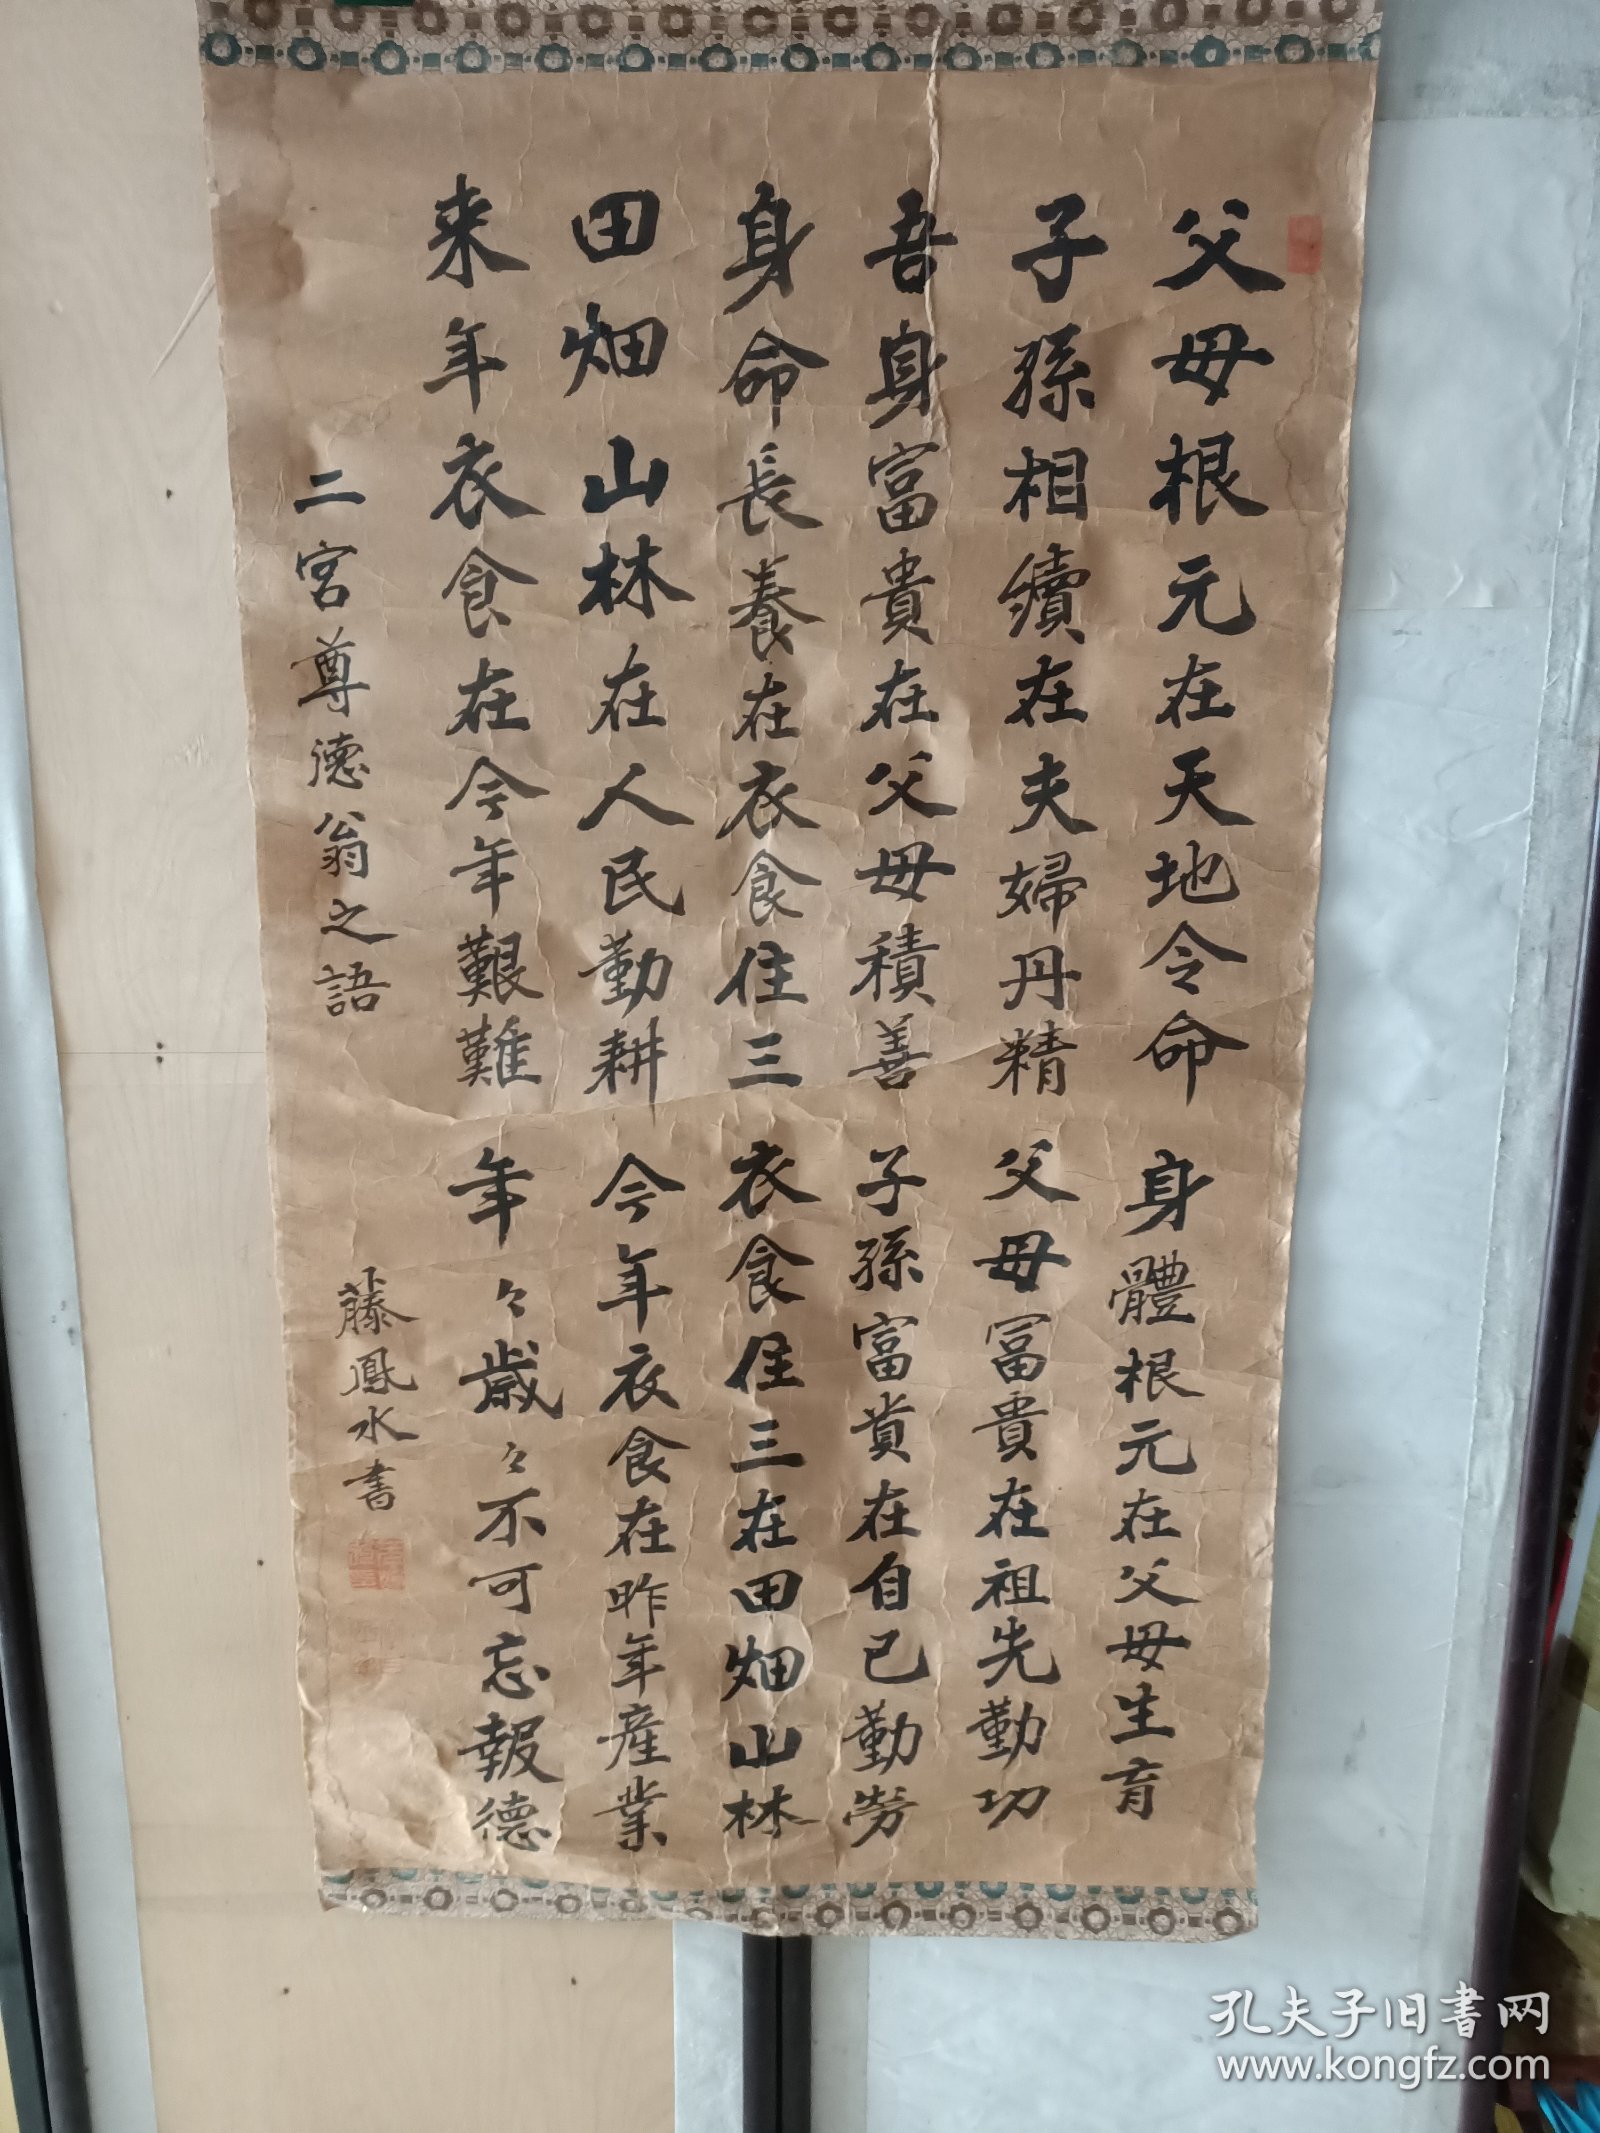 父母根元在天地令命 身體根元在父母生育
子孫相續在夫婦丹精 父母冨貴在祖先勤功
吾身富貴在父母積善 子孫富貴在自己勤労
身命長養在衣食住三 衣食住三在田畑山林
田畑山林在人民勤耕 今年衣食在昨年産業
来年衣食在今年艱難 年々歳々不可忘報徳
二宮尊徳翁之語
藤鳳水書
孔夫子旧书网
www.kongfz.com